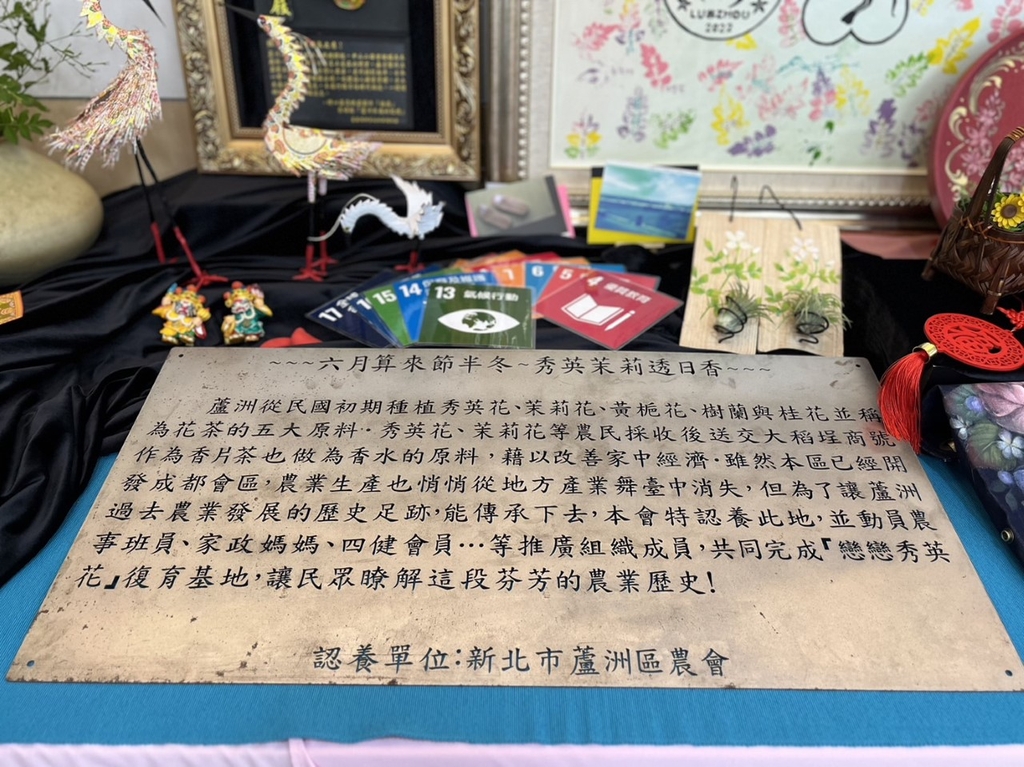 LUZHOU
2022
17
15
14
13 氣候行動
7
6
5
4 優質教育
~~~六月算來節半冬~秀英茉莉透日香~~~
蘆洲從民國初期種植秀英花、茉莉花、黃梔花、樹蘭與桂花並稱
為花茶的五大原料‧秀英花、茉莉花等農民採收後送交大稻埕商號
作為香片茶也做為香水的原料,藉以改善家中經濟‧雖然本區已經開
發成都會區,農業生產也悄悄從地方產業舞臺中消失,但為了讓蘆洲
過去農業發展的歷史足跡,能傳承下去,本會特認養此地,並動員農
事班員、家政媽媽、四健會員…等推廣組織成員,共同完成『戀戀秀英
花』復育基地,讓民眾瞭解這段芬芳的農業歷史!
認養單位:新北市蘆洲區農會